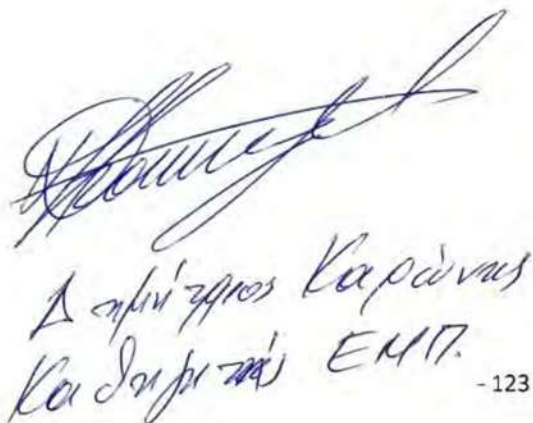 Δημήτριος Καρώνης
Καθηγητής ΕΜΠ.
- 123